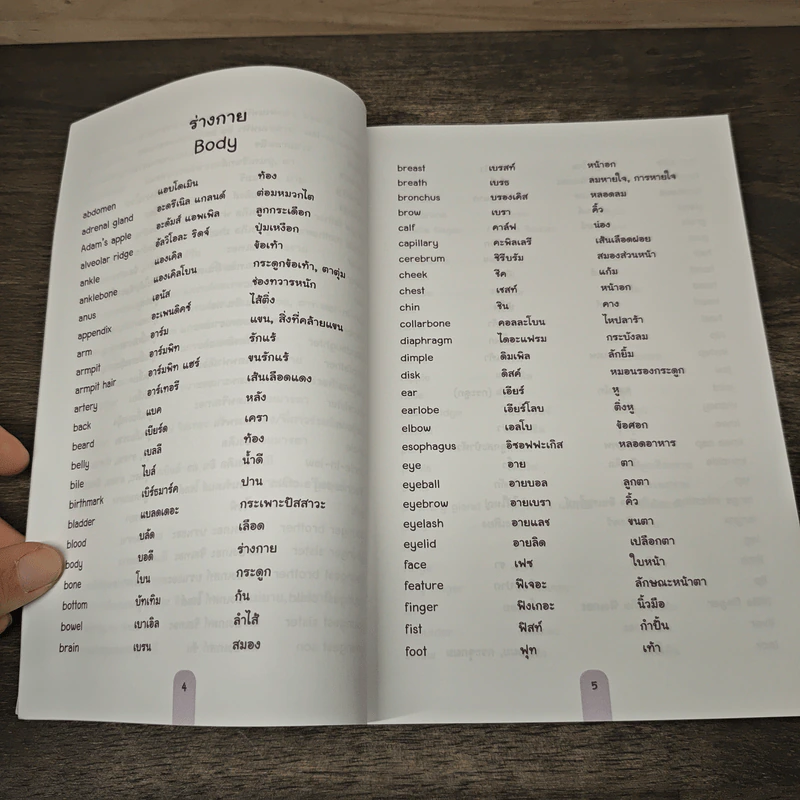 ร่างกาย
Body
abdomen แอบโดเมิน ท้อง
adrenal gland อะดรีเนิล แกลนด์ ต่อมหมวกไต
Adam's apple อะดัมส์ แอพเพิล ลูกกระเดือก
alveolar ridge อัลวิโอละ ริดจ์ ปุ่มเหงือก
ankle แองเคิล ข้อเท้า
anklebone แองเคิลโบน กระดูกข้อเท้า, ตาตุ่ม
anus เอนัส ช่องทวารหนัก
appendix อะเพนดิคซ์ ไส้ติ่ง
arm อาร์ม แขน, สิ่งที่คล้ายแขน
armpit อาร์มพิท รักแร้
armpit hair อาร์มพิท แฮร์ ขนรักแร้
artery อาร์เทอรี เส้นเลือดแดง
back แบค หลัง
beard เบียร์ด เครา
belly เบลลี ท้อง
bile ไบล์ น้ำดี
birthmark เบิร์ธมาร์ค ปาน
bladder แบลดเดอะ กระเพาะปัสสาวะ
blood บลัด เลือด
body บอดี ร่างกาย
bone โบน กระดูก
bottom บัทเทิม ก้น
bowel เบาเอิล ลำไส้
brain เบรน สมอง
4
breast เบรสท์ หน้าอก
breath เบรธ ลมหายใจ, การหายใจ
bronchus บรองเคิส หลอดลม
brow เบรา คิ้ว
calf คาล์ฟ น่อง
capillary คะพิลเลรี เส้นเลือดฝอย
cerebrum ซิรีบรัม สมองส่วนหน้า
cheek ชีค แก้ม
chest เชสท์ หน้าอก
chin ชิน คาง
collarbone คอลละโบน ไหปลาร้า
diaphragm ไดอะแฟรม กระบังลม
dimple ดิมเพิล ลักยิ้ม
disk ดิสค์ หมอนรองกระดูก
ear เอียร์ หู
earlobe เอียร์โลบ ติ่งหู
elbow เอลโบ ข้อศอก
esophagus อีซอฟฟะเกิส หลอดอาหาร
eye อาย ตา
eyeball อายบอล ลูกตา
eyebrow อายเบรา คิ้ว
eyelash อายแลช ขนตา
eyelid อายลิด เปลือกตา
face เฟซ ใบหน้า
feature ฟีเจอะ ลักษณะหน้าตา
finger ฟิงเกอะ นิ้วมือ
fist ฟิสท์ กำปั้น
foot ฟุท เท้า
5